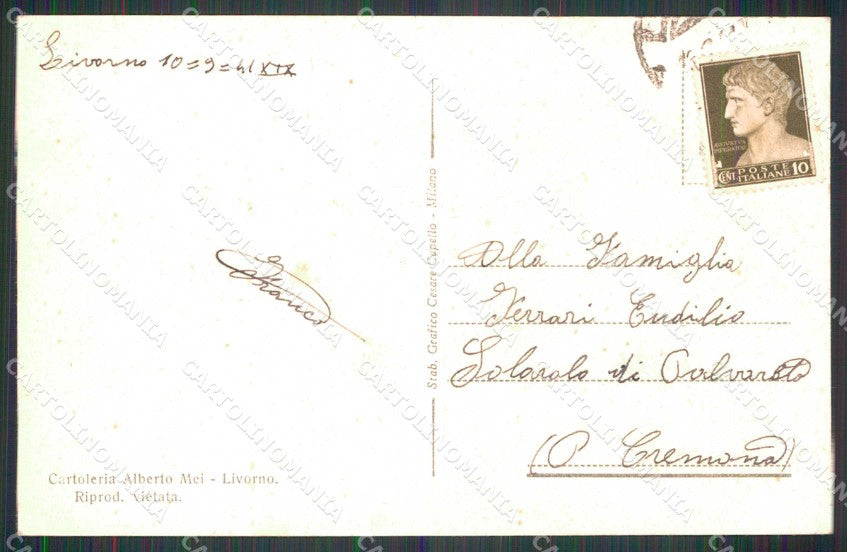 Livorno 10=9=41 XIX
AVGVSTVS
IMPERATOR
CENT. POSTE
ITALIANE 10
Alla Famiglia
Ferrari Eudilio
Solarolo di
(P Cremona)
Franco
Stab. Grafico Cesare Capello - Milano
Cartoleria Alberto Mei - Livorno.
Riprod. Vietata.
CARTOLINOMANIA